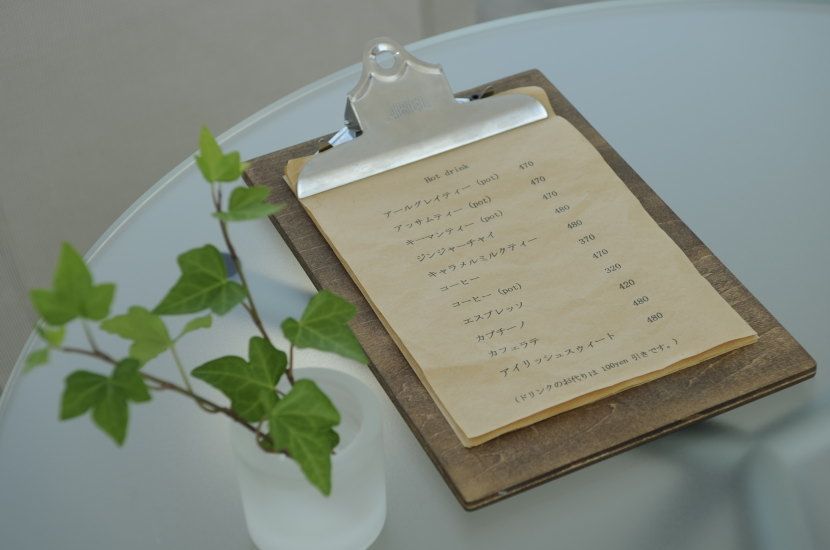 Hot drink
アールグレイティー (pot) 470
アッサムティー (pot) 470
キーマンティー (pot) 470
ジンジャーチャイ 480
キャラメルミルクティー 480
コーヒー 370
コーヒー (pot) 470
エスプレッソ 320
カプチーノ 420
カフェラテ 480
アイリッシュスウィート 480
(ドリンクのお代りは 100yen 引きです。)